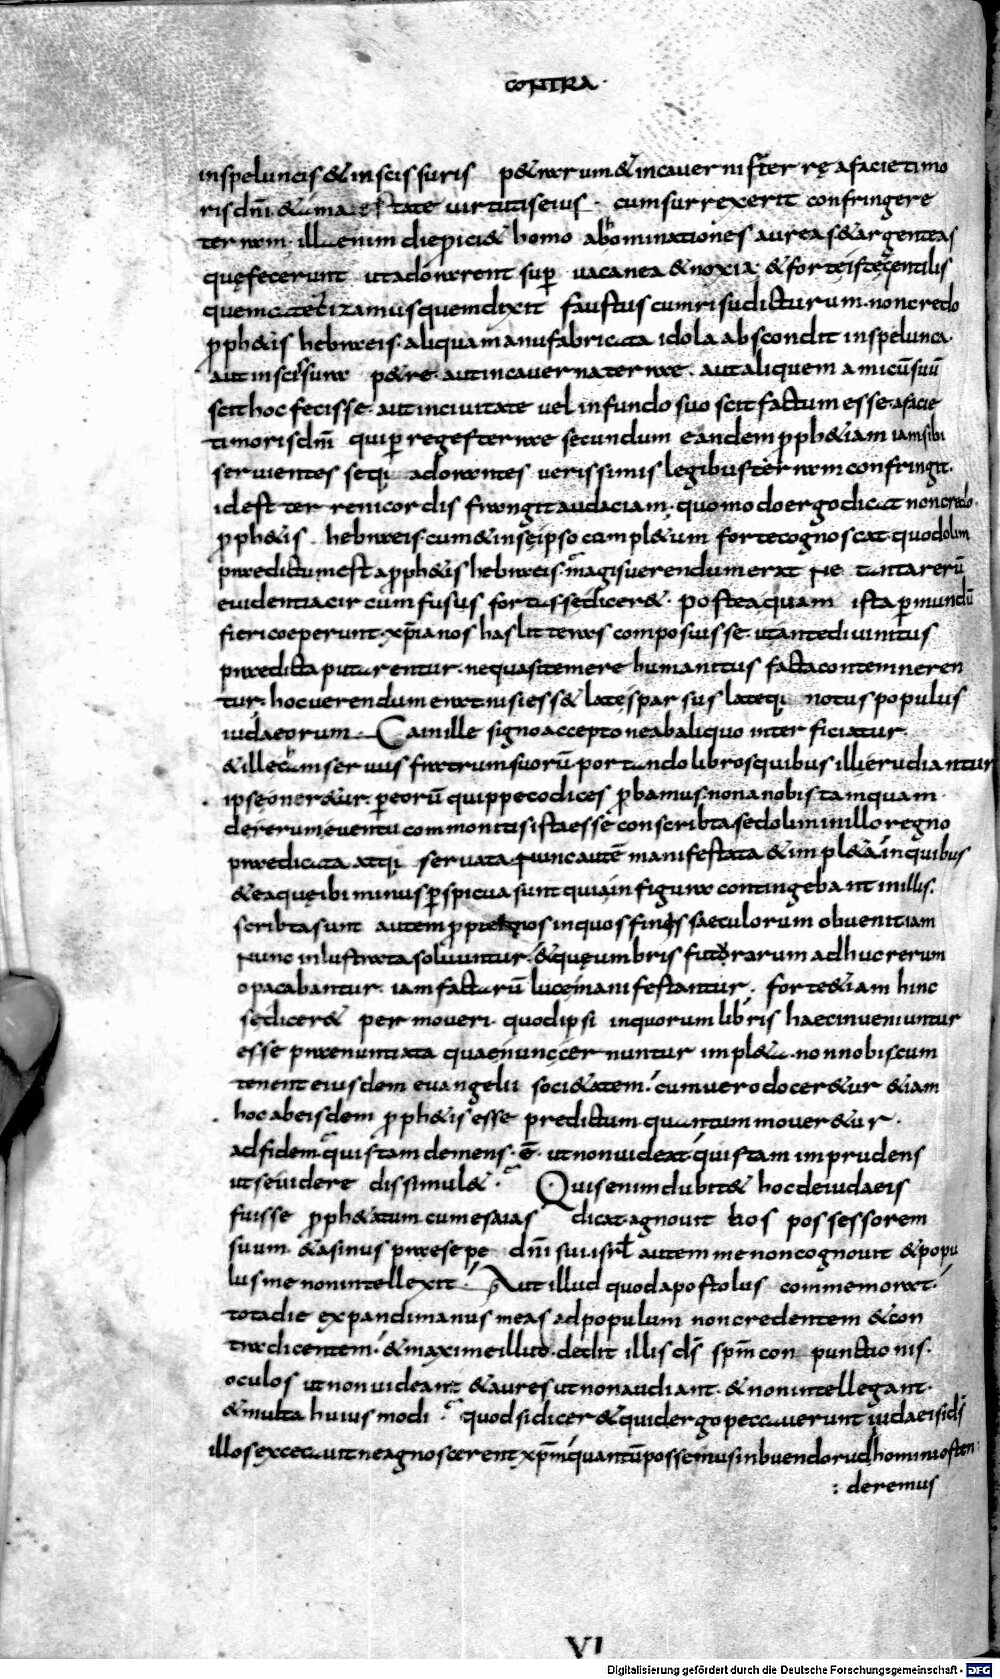 CONTRA
inspeluncis & inscissuris p&rarum & incavernis terrę afacie timo
ris dn̄i & a maiestate virtutis eius · cum surrexerit confringere
terram · illa enim die piciet homo abominationes aureas & argenteas
quę fecerunt ut adorarent sup vacanea & noxia & forte iste gentilis
quem catecizamus quem dixit faustus cum risu dicturum · non credo
pph&is hebraeis · aliqua manu fabricata idola abscondit in spelunca ·
aut in scissura p&re · aut in caverna terrae · aut aliquem amicū suū
scit hoc fecisse · aut in civitate vel in fundo suo scit factum esse afacie
timoris dn̄i qui p reges terrae secundum eandem pph&iam iam sibi
servientes seq; adorantes verissimis legibus terram confringit ·
id est terreni cordis frangit audaciam · quomodo ergo dicat non credo ·
pph&is hebraeis · cum & in seipso compl&um forte cognoscat · quod olim
praedictum est a pph&is hebraeis · magis verendum erat Ne tanta rerū
evidentia circumfusus fortasse dicer& · postea quam ista p mundū
fieri coeperunt · xp̄ianos has litteras composuisse · ut ante divinitus
praedicta putarentur · ne quasi temere humanitus facta contemneren
tur · hoc verendum erat nisi ess& late sparsus lateq; notus populus
iudaeorum · Cain ille signo accepto ne ab aliquo interficiatur ·
& ille cham servus fratrum suorū · portando libros quibus illi erudiantur
ipse oner&ur · p eorū quippe codices pbamus · non a nobis tamquam
de rerum eventu commonitis ista esse conscribta sed olim in illo regno
praedicata atq; servata Nunc autē manifestata & impl&a in quibus
& ea quę ibi minus pspicua sunt quia in figura contingebant in illis ·
scribta sunt autem ppter nos in quos finis saeculorum obvenit iam
Nunc inlustrata solvuntur · & quę umbris futurarum adhuc rerum
opacabantur · iam facta rū luce manifestantur · forte & iam hinc
se dicer& permoveri · quod ipsi in quorum libris haec inveniuntur
esse praenuntiata quae nunc cernuntur impl&a · non nobiscum
tenent eiusdem evangelii soci&atem · cum vero docer&ur &iam
hoc ab eisdem pph&is esse predictum quantum mover&ur ·
ad fidem · quis tam demens · ē · ut non videat · quis tam imprudens
ut se videre dissimul& · Quis enim dubit& hoc de iudaeis
fuisse pph&atum cum esaias dicat · agnovit bos possessorem
suum · & asinus praesepe dn̄i sui · isrl autem me non cognovit & popu
lus me non intellexit · Aut illud quod apostolus commemorat ·
tota die expandi manus meas ad populum non credentem & con
tradicentem · & maxime illud · dedit illis ds̄ sp̄m conpunctionis ·
oculos ut non videant & aures ut non audiant · & non intellegant ·
& multa huius modi · quod si dicer& quid ergo peccaverunt iudaei si ds̄
illos excecavit ne agnoscerent xp̄m · quantū possemus inbuendo rudi homini osten
: deremus
VI
Digitalisierung gefördert durch die Deutsche Forschungsgemeinschaft - DFG